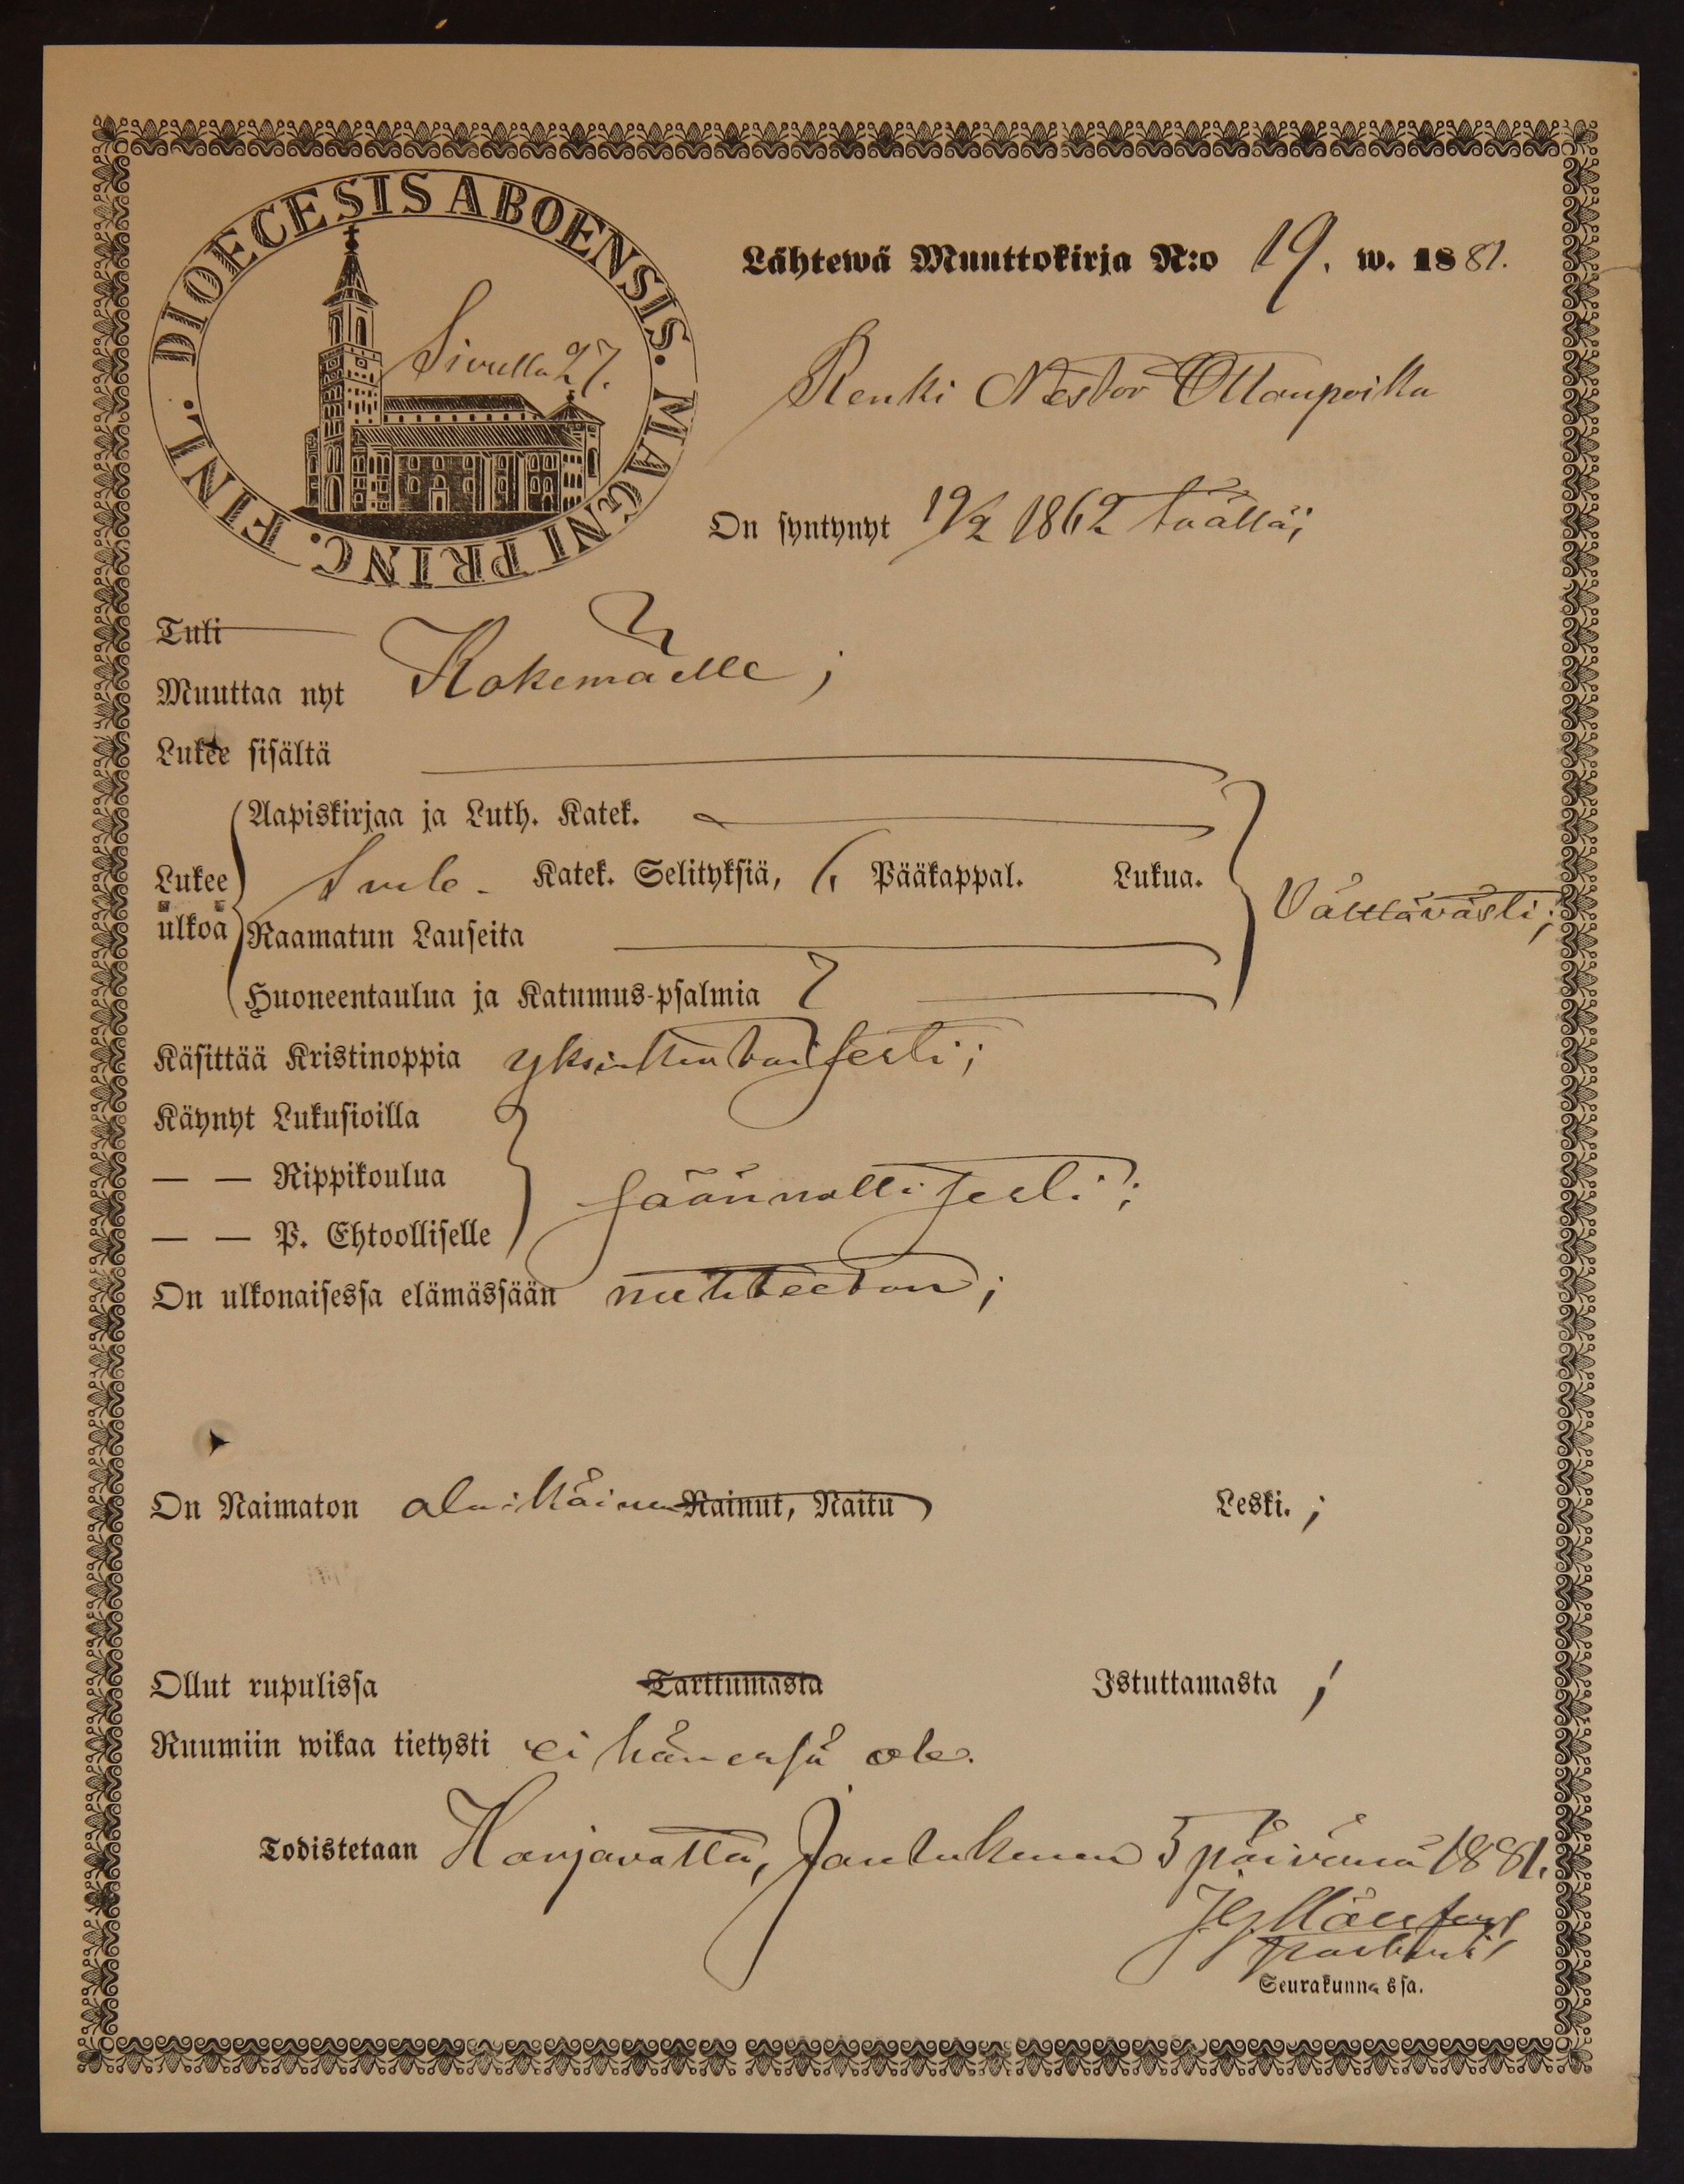 DIOECESIS ABOENSIS. MAGNI PRINC. FINL.
Sivulla 27.
Lähtewä Muuttokirja N:o 19. w. 1881.
Renki Nestor Ottonpoika
On syntynyt 19/2 1862 täällä;
Tuli
Muuttaa nyt Kokemäelle;
Lukee sisältä
Aapiskirjaa ja Luth. Katek.
Lukee ulkoa
Katek. Selityksiä, Pääkappal. Lukua.
Välttävästi;
Raamatun Lauseita
Huoneentaulua ja Katumus-psalmia
Käsittää Kristinoppia yksinkertaisesti;
Käynyt Lukusioilla
— — Rippikoulua
säännöllisesti;
— — P. Ehtoolliselle
On ulkonaisessa elämässään nuhteeton;
On Naimaton alaikäinen Nainut, Naitu Leski.;
Ollut rupulissa Tarttumasta Istuttamasta;
Ruumiin wikaa tietysti ei hänessä ole.
Todistetaan Harjavalta, Joulukuun 5 päivänä 1881.
Seurakunnassa.